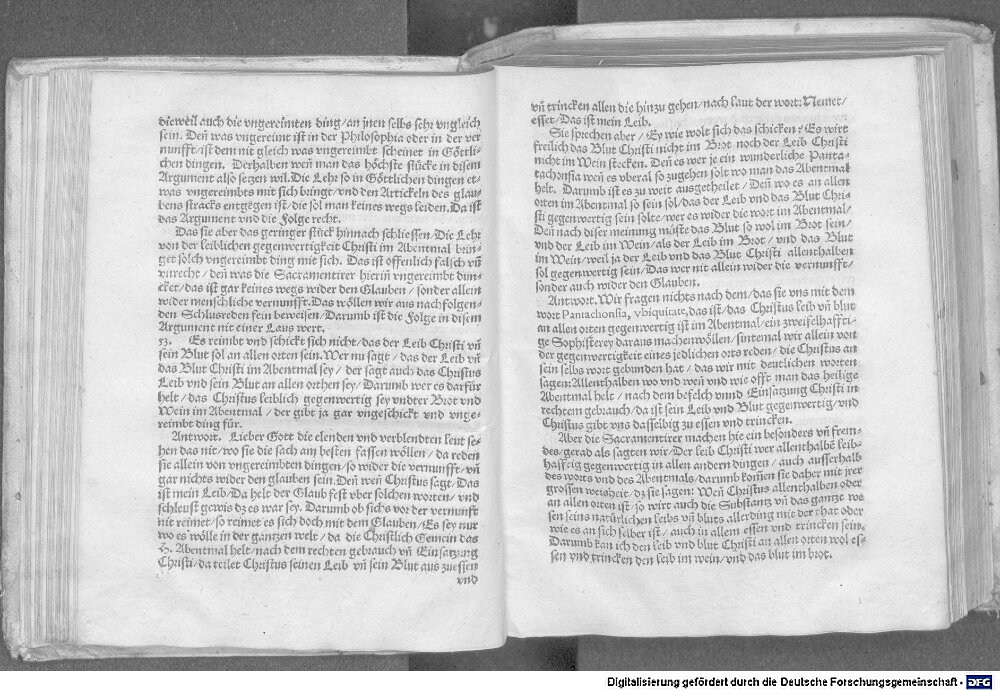 dieweil auch die vngereimten ding/an jnen selbs sehr vngleich
sein. Deñ was vngereimt ist in der Philosophia oder in der ver
nunfft/ist dem nit gleich was vngereimbt scheinet in Göttli-
chen dingen. Derhalben weñ man das höchste stücke in disem
Argument also setzen wil. Die Lehr so in Göttlichen dingen et-
was vngereimbts mit sich bringt/vnd den Artickeln des glau-
bens stracks entgegen ist/die sol man keines wegs leiden. Da ist
das Argument vnd die Folge recht.
Das sie aber das geringer stück hinnach schliessen/Die Lehr
von der leiblichen gegenwertigkeit Christi im Abentmal brin-
get solch vngereimbt ding mit sich. Das ist offenlich falsch vñ
vnrecht/deñ was die Sacramentirer hieriñ vngereimbt dun-
cket/das ist gar keines wegs wider den Glauben/sonder allein
wider menschliche vernunfft. Das wöllen wir aus nachfolgen-
den Schlusreden fein beweisen/Darumb ist die Folge in disem
Argument nit einer Laus wert.
53. Es reimbt vnd schickt sich nicht/das der Leib Christi vñ
sein Blut sol an allen orten sein. Wer nu sagt/das der Leib vñ
das Blut Christi im Abentmal sey/der sagt auch das Christus
Leib vnd sein Blut an allen orthen sey/Darumb wer es darfür
helt/das Christus leiblich gegenwertig sey vndter Brot vnd
Wein im Abentmal/der gibt ja gar vngeschickt vnd vnge-
reimbt ding für.
Antwort. Lieber Gott die elenden vnd verblendten leut se-
hen das nit/wo sie die sach am besten fassen wöllen/da reden
sie allein von vngereimbten dingen/so wider die vernunfft/vñ
gar nichts wider den glauben sein. Deñ weñ Christus sagt. Das
ist mein Leib/Da helt der Glaub fest vber solchen worten/vnd
schleust gewis dz es war sey. Darumb ob sichs vor der vernunft
nit reimet/so reimet es sich doch mit dem Glauben/Es sey nur
wo es wölle in der gantzen welt/da die Christlich Gemein das
H. Abentmal helt/nach dem rechten gebrauch vñ Einsatzung
Christi/da teilet Christus seinen Leib vñ sein Blut aus zuessen
vnd
vñ trincken allen die hinzu gehen/nach laut der wort: Nemet/
esset/Das ist mein Leib.
Sie sprechen aber/Ey wie wolt sich das schicken? Es wirt
freilich das Blut Christi nicht im Brot noch der Leib Christi
nicht im Wein stecken. Deñ es wer je ein wunderliche Panta-
tachonsia weñ es vberal so zugehen solt wo man das Abentmal
helt. Darumb ist es zu weit ausgetheilet/Deñ wo es an allen
orten im Abentmal so sein sol/das der Leib vnd das Blut Chri-
sti gegenwertig sein solte/wer es wider die wort im Abentmal/
Deñ nach diser meinung müste das Blut so wol im Brot sein/
vnd der Leib im Wein/als der Leib im Brot/vnd das Blut
im Wein/weil ja der Leib vnd das Blut Christi allenthalben
sol gegenwertig sein/Das wer nit allein wider die vernunfft/
sonder auch wider den Glauben.
Antwort. Wir fragen nichts nach dem/das sie vns mit dem
wort Pantachonsia, vbiquitate, das ist/das Christus leib vñ blut
an allen orten gegenwertig ist im Abentmal/ein zweifelhaffti-
ge Sophisterey daraus machen wöllen/sintemal wir allein von
der gegenwertigkeit eines jedlichen orts reden/die Christus an
sein selbs wort gebunden hat/das wir mit deutlichen worten
sagen: Allenthalben wo vnd weñ vnd wie offt man das heilige
Abentmal helt/nach dem befelch vnnd Einsatzung Christi in
rechtem gebrauch/da ist sein Leib vnd Blut gegenwertig/vnd
Christus gibt vns dasselbig zu essen vnd trincken.
Aber die Sacramentirer machen hie ein besonders vñ frem-
des/gerad als sagten wir/Der leib Christi wer allenthalbē leib-
hafftig gegenwertig in allen andern dingen/auch ausserhalb
des worts vnd des Abentmals/darumb kom̃en sie daher mit jrer
grossen weisheit/dz sie sagen: Weñ Christus allenthalben oder
an allen orten ist/so wirt auch die Substantz vñ das gantze we
sen seins natürlichen leibs vñ bluts allerding mit der that oder
wie es an sich selber ist/auch in allem essen vnd trincken sein.
Darumb kan ich den leib vnd blut Christi an allen orten wol es-
sen vnd trincken den leib im wein/vnd das blut im brot.
Digitalisierung gefördert durch die Deutsche Forschungsgemeinschaft - DFG